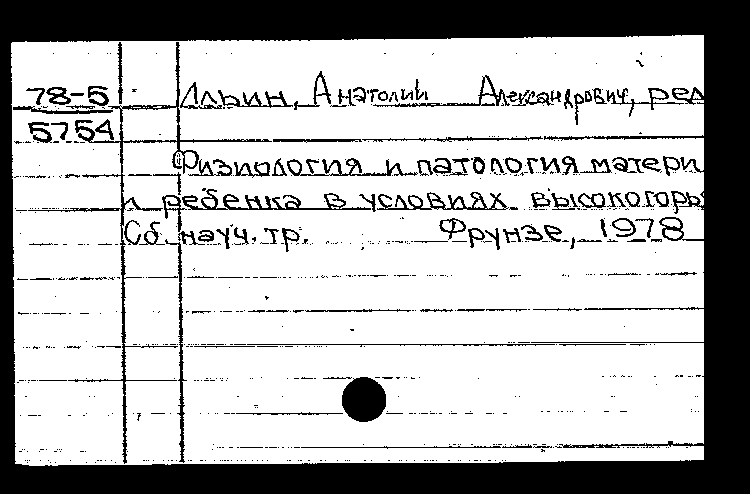 78-5 Ильин, Анатолий Александрович, ред
5754
Физиология и патология матери
и ребенка в условиях высокогорья
Сб. науч. тр. Фрунзе, 1978